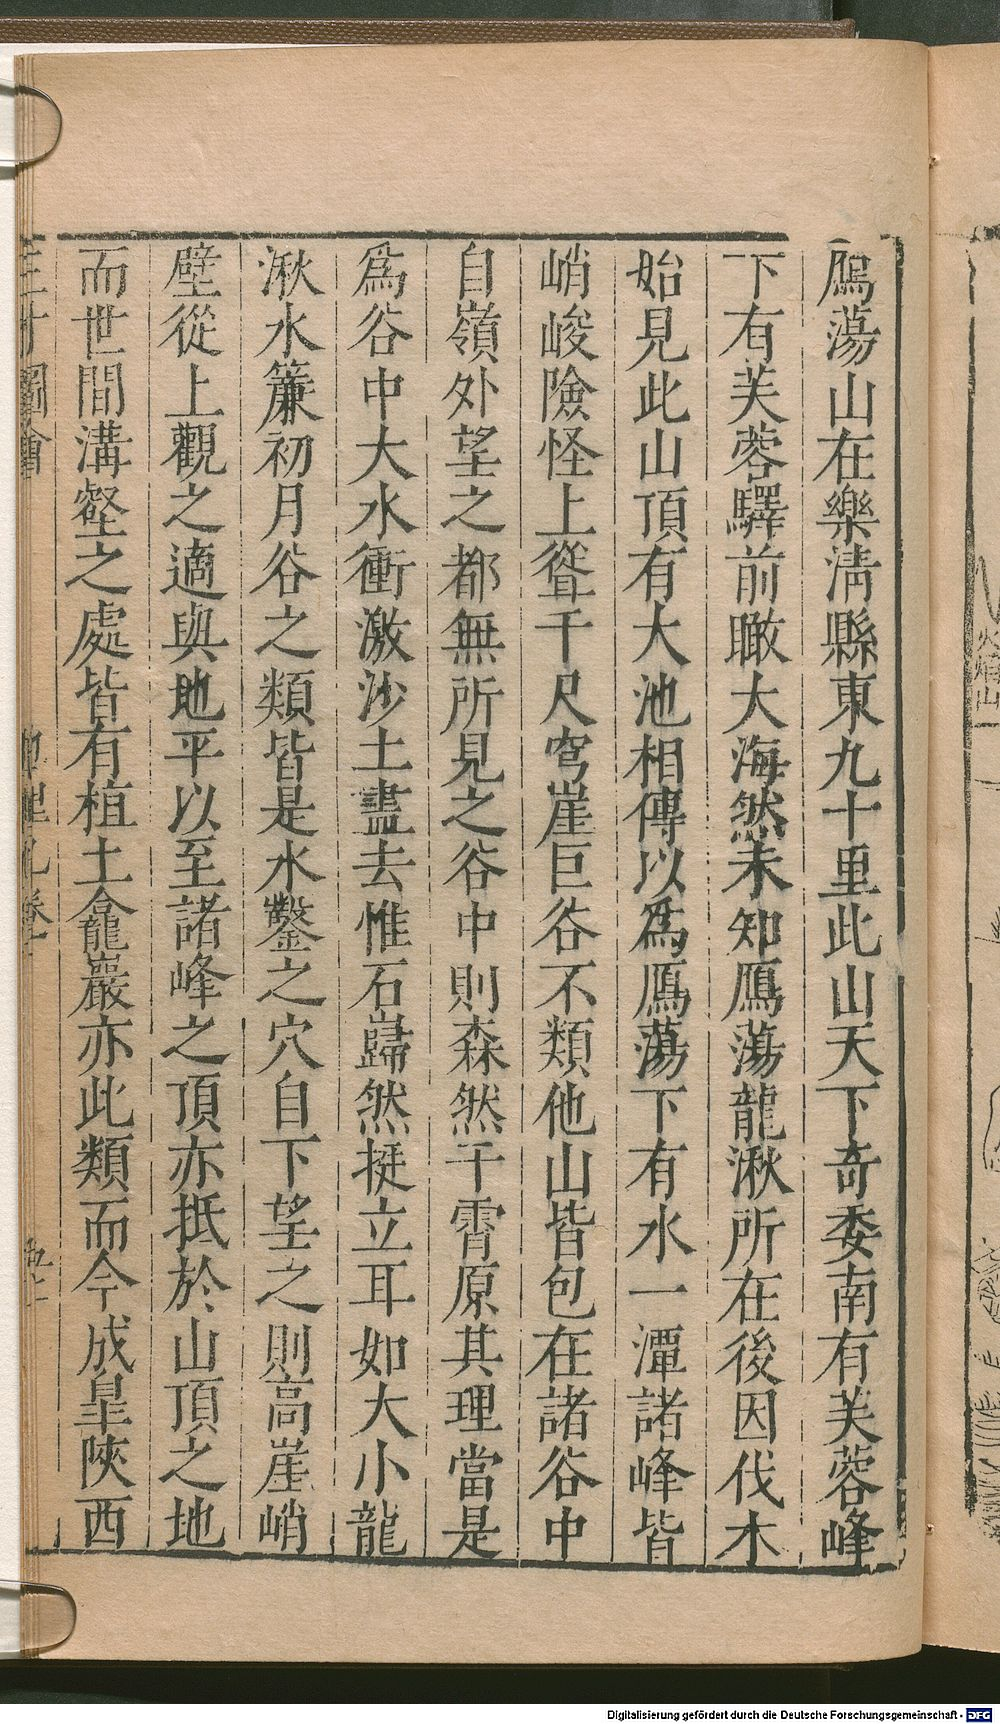 鴈蕩山在樂清縣東九十里此山天下奇委南有芙蓉峰
下有芙蓉驛前瞰大海然未知鴈蕩龍湫所在後因伐木
始見此山頂有大池相傳以爲鴈蕩下有水一潭諸峰皆
峭峻險怪上聳千尺穹崖巨谷不類他山皆包在諸谷中
自嶺外望之都無所見之谷中則森然干霄原其理當是
爲谷中大水衝激沙土盡去惟石巋然挺立耳如大小龍
湫水簾初月谷之類皆是水鑿之穴自下望之則高崖峭
壁從上觀之適與地平以至諸峰之頂亦抵於山頂之地
而世間溝壑之處皆有植土龕巖亦此類而今成皐陝西
三才圖會
地理九卷
火焰山
Digitalisierung gefördert durch die Deutsche Forschungsgemeinschaft - DFG